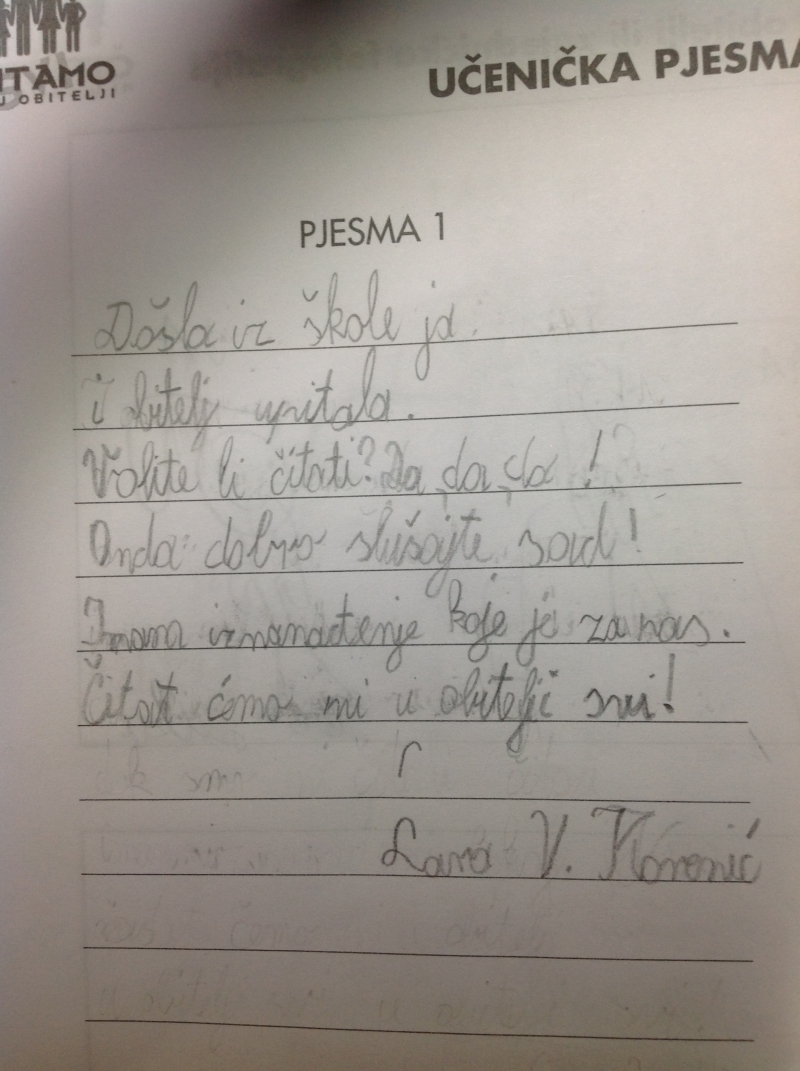 ITAMO
U OBITELJI
UČENIČKA PJESMA
PJESMA 1
Došla iz škole ja
i obitelj upitala.
Volite li čitati? Da, da, da!
Onda dobro slušajte sad!
Imam iznenađenje koje je za nas.
Čitat ćemo mi u obitelji svi!
Lana V. Korenić